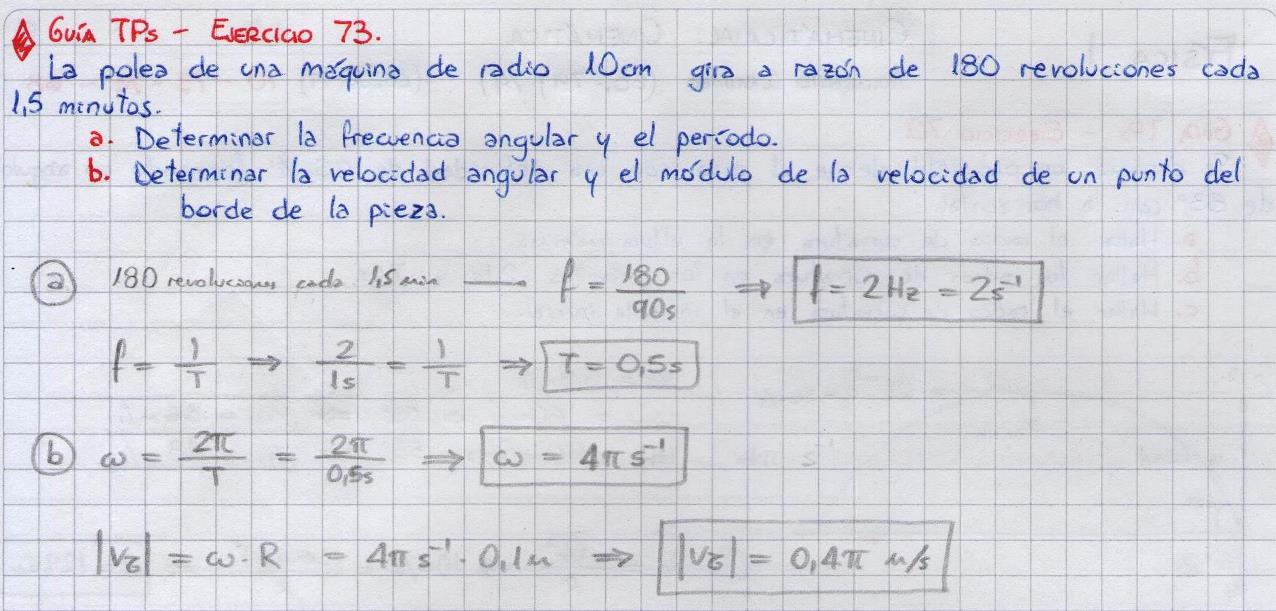 GUÍA TPs - EJERCICIO 73.
La polea de una máquina de radio 10cm gira a razón de 180 revoluciones cada
1,5 minutos.
a. Determinar la frecuencia angular y el período.
b. Determinar la velocidad angular y el módulo de la velocidad de un punto del
borde de la pieza.
a 180 revoluciones cada 1,5 min — f = 180/90s ⇒ f = 2Hz = 2s⁻¹
f = 1/T ⇒ 2/1s = 1/T ⇒ T = 0,5s
b ω = 2π/T = 2π/0,5s ⇒ ω = 4π s⁻¹
|Vτ| = ω · R = 4π s⁻¹ · 0,1m ⇒ |Vτ| = 0,4π m/s